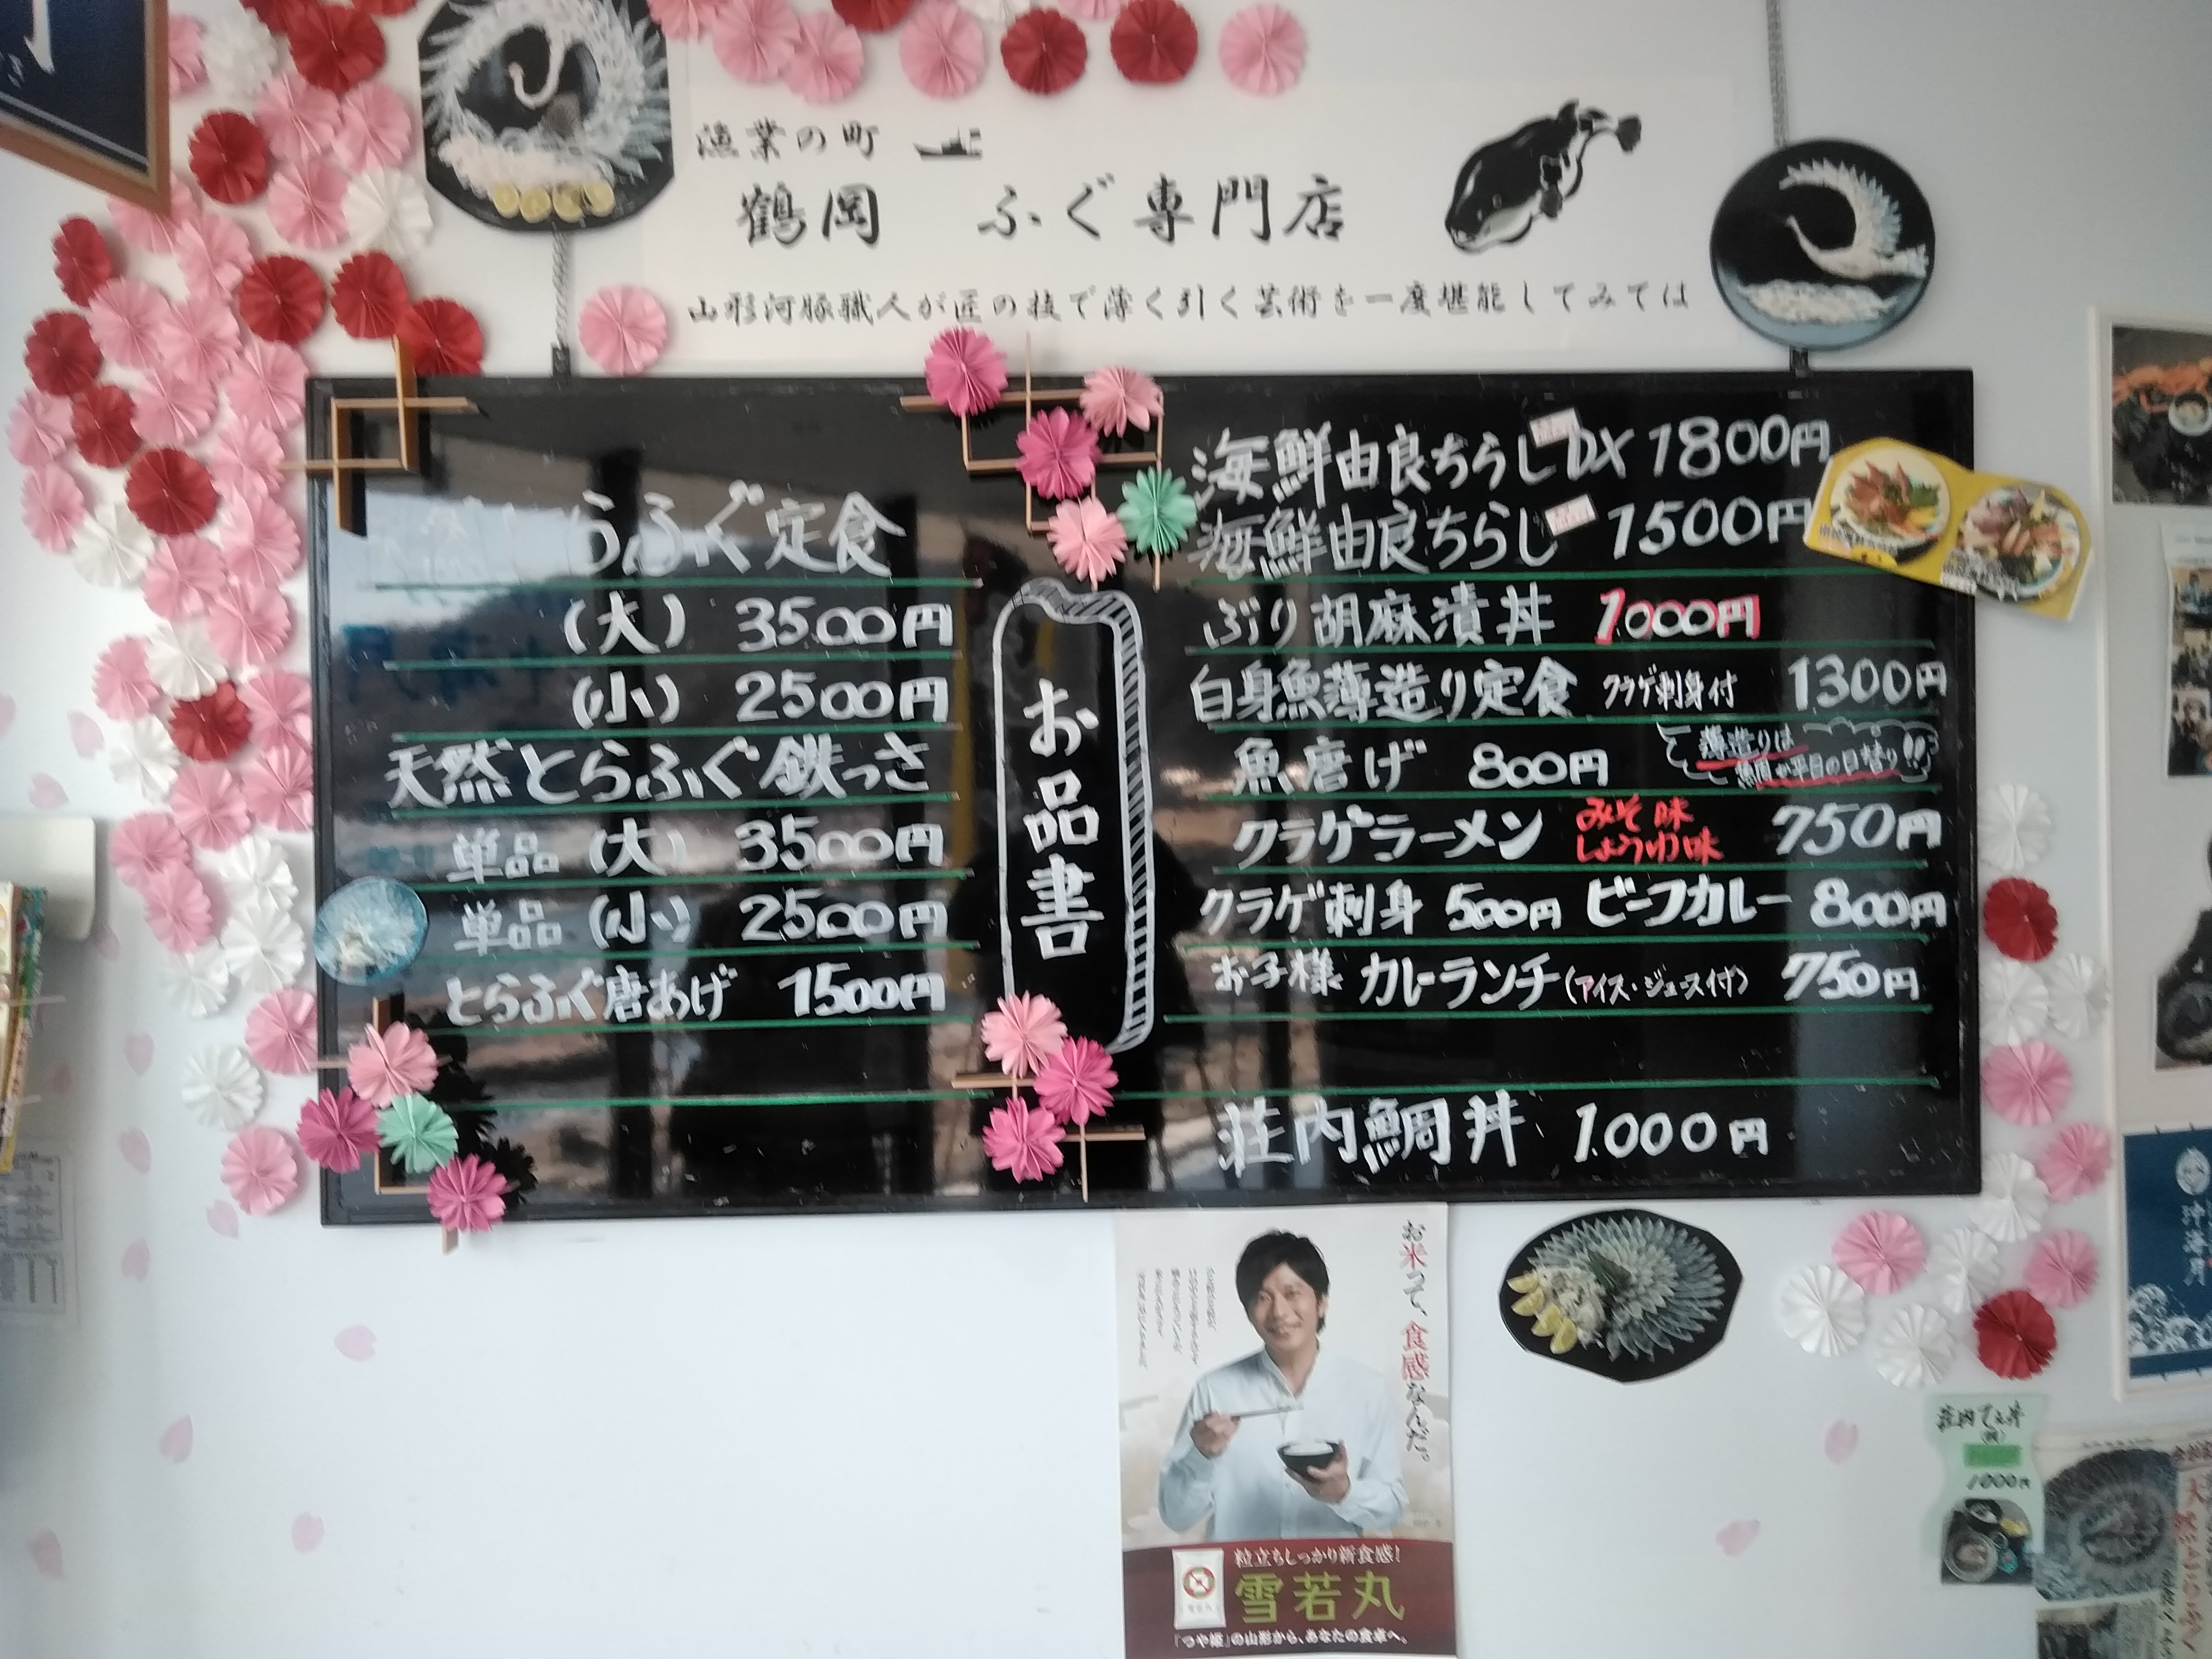 漁業の町
鶴岡 ふぐ専門店
山形河豚職人が匠の技で薄く引く芸術を一度堪能してみては
らふぐ定食
(大) 3500円
(小) 2500円
天然とらふぐ鉄っさ
単品 (大) 3500円
単品 (小) 2500円
とらふぐ唐あげ 1500円
お品書
海鮮由良ちらしDX 1800円
海鮮由良ちらし 1500円
ぶり胡麻漬丼 1000円
白身魚薄造り定食 クラゲ刺身付 1300円
魚唐げ 800円
薄造りは
平目の日替り!!
クラゲラーメン みそ味 しょうゆ味 750円
クラゲ刺身 500円 ビーフカレー 800円
お子様 カレーランチ (アイス・ジュース付) 750円
荘内鯛丼 1.000円
お米って、食感なんだ。
粒立ちしっかり新食感!
雪若丸
「つや姫」の山形から、あなたの食卓へ。
1000円